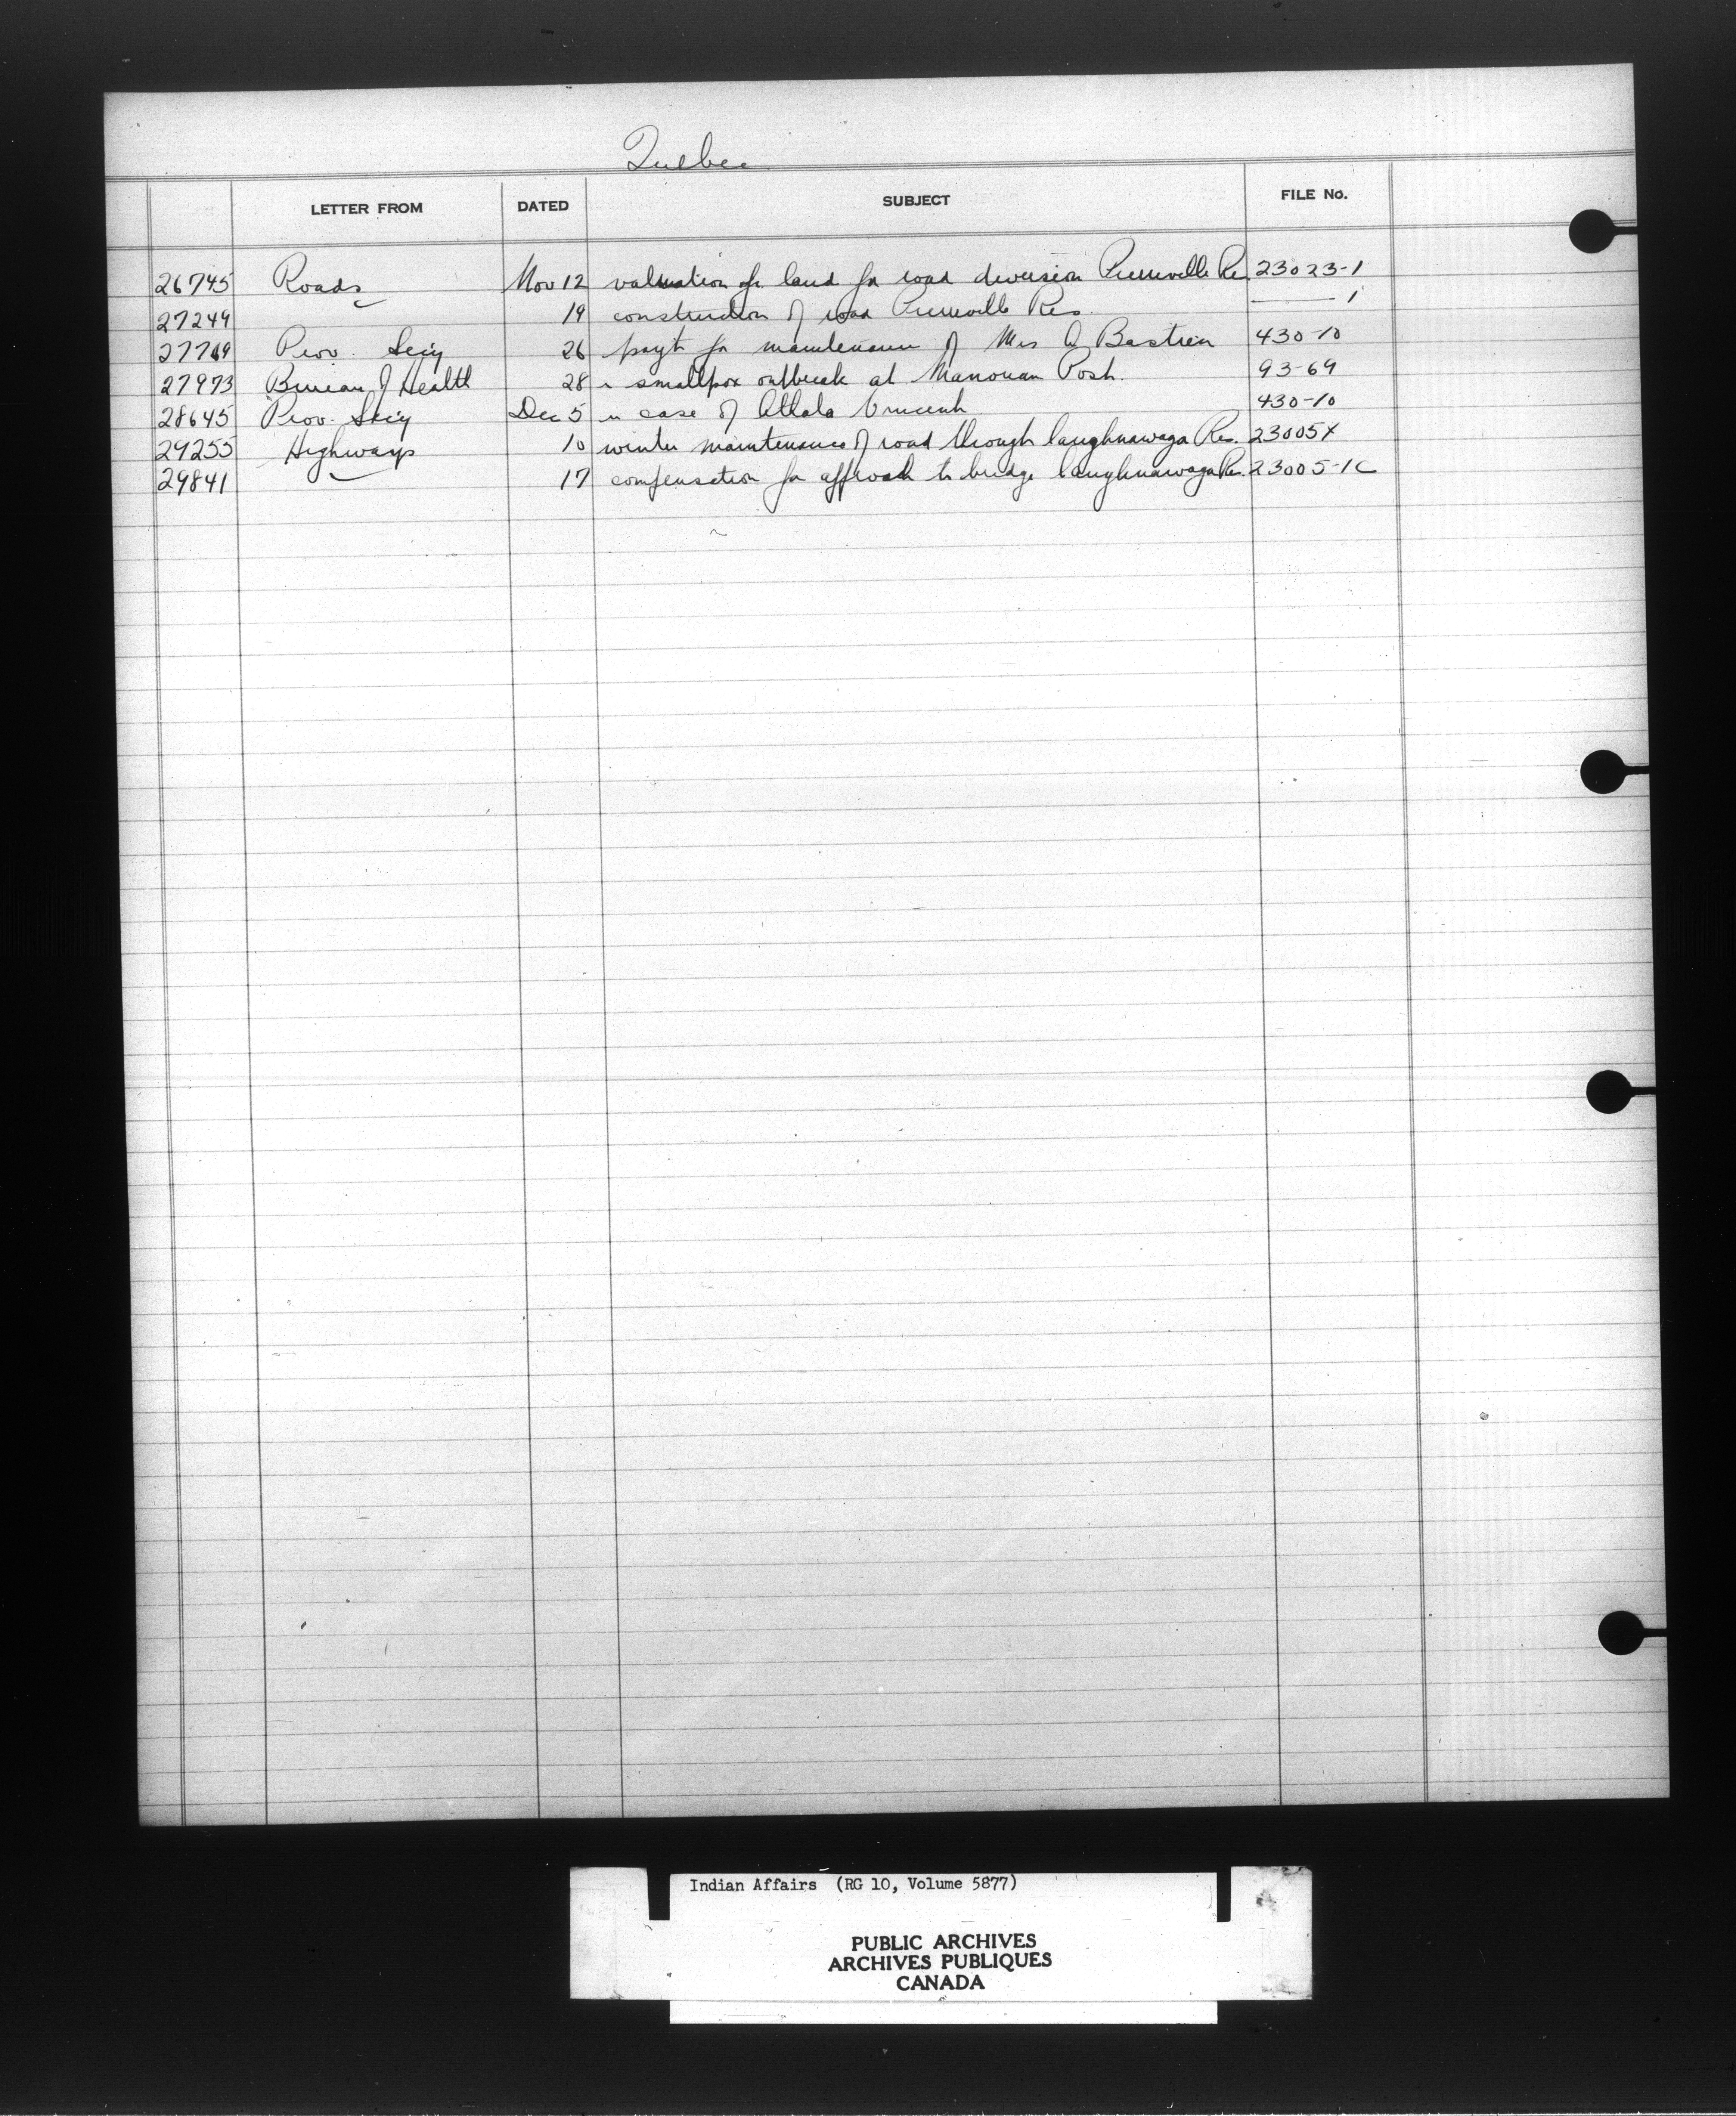 Quebec
LETTER FROM DATED SUBJECT FILE No.
26745 Roads Nov 12 valuation of land for road diversion Pierreville Res 23023-1
27249 19 construction of road Pierreville Res. —— 1
27769 Prov. Secy 26 payt for maintenance of Mrs A Bastien 430-10
27973 Bureau of Health 28 smallpox outbreak at Manouan Post. 93-69
28645 Prov. Secy Dec 5 case of Attala Vincent 430-10
29255 Highways 10 winter maintenance of road through Caughnawaga Res. 23005X
29841 17 compensation for approach to bridge Caughnawaga Res. 23005-1C
Indian Affairs (RG 10, Volume 5877)
PUBLIC ARCHIVES
ARCHIVES PUBLIQUES
CANADA